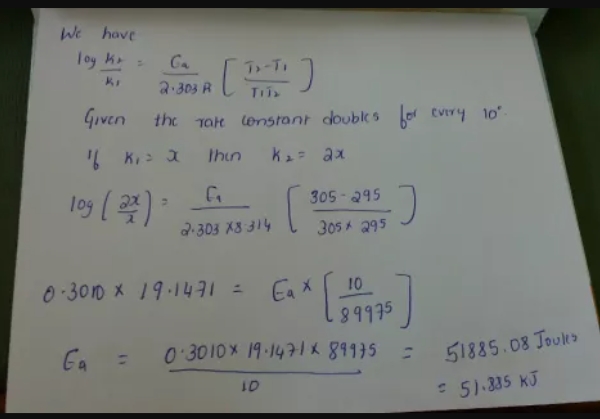 We have
log k₂/k₁ = Ea / 2.303R [ T₂-T₁ / T₁T₂ ]
Given the rate constant doubles for every 10°.
If K₁ = x then K₂ = 2x
log ( 2x / x ) = Ea / 2.303 x 8.314 [ 305 - 295 / 305 x 295 ]
0.3010 x 19.1471 = Ea x [ 10 / 89975 ]
Ea = 0.3010 x 19.1471 x 89975 / 10 = 51885.08 Joules
= 51.885 KJ